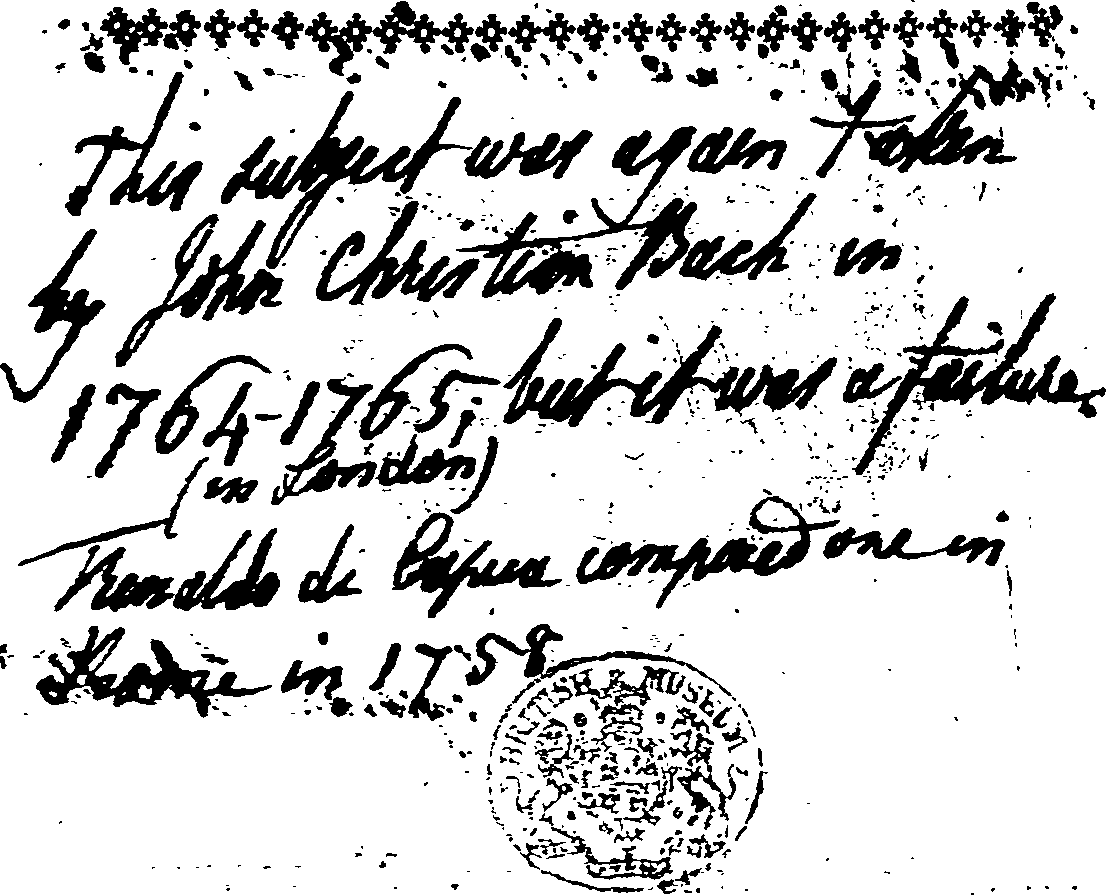 This subject was again taken
by John Christian Bach in
1764-1765, but it was a failure.
(in London)
Renaldo di Capua composed one in
Rome in 1758
BRITISH MUSEUM